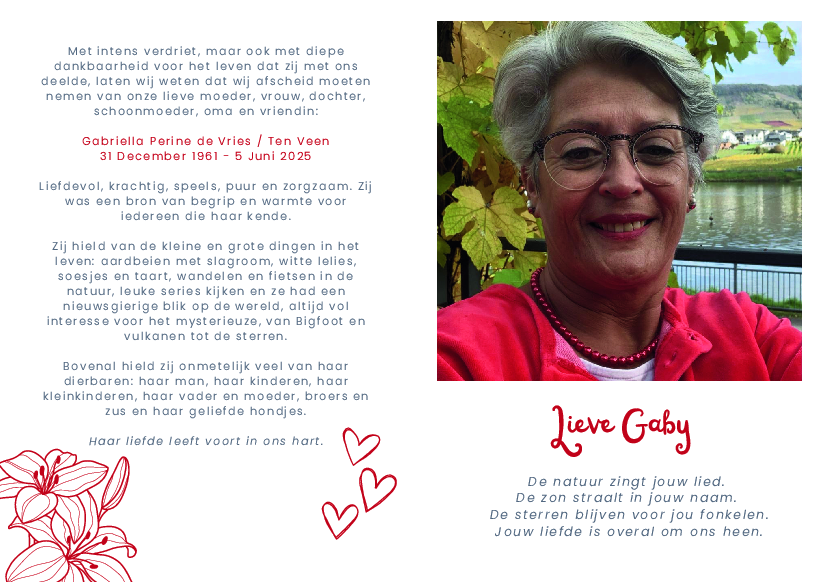 Met intens verdriet, maar ook met diepe
dankbaarheid voor het leven dat zij met ons
deelde, laten wij weten dat wij afscheid moeten
nemen van onze lieve moeder, vrouw, dochter,
schoonmoeder, oma en vriendin:
Gabriella Perine de Vries / Ten Veen
31 December 1961 - 5 Juni 2025
Liefdevol, krachtig, speels, puur en zorgzaam. Zij
was een bron van begrip en warmte voor
iedereen die haar kende.
Zij hield van de kleine en grote dingen in het
leven: aardbeien met slagroom, witte lelies,
soesjes en taart, wandelen en fietsen in de
natuur, leuke series kijken en ze had een
nieuwsgierige blik op de wereld, altijd vol
interesse voor het mysterieuze, van Bigfoot en
vulkanen tot de sterren.
Bovenal hield zij onmetelijk veel van haar
dierbaren: haar man, haar kinderen, haar
kleinkinderen, haar vader en moeder, broers en
zus en haar geliefde hondjes.
Haar liefde leeft voort in ons hart.
Lieve Gaby
De natuur zingt jouw lied.
De zon straalt in jouw naam.
De sterren blijven voor jou fonkelen.
Jouw liefde is overal om ons heen.